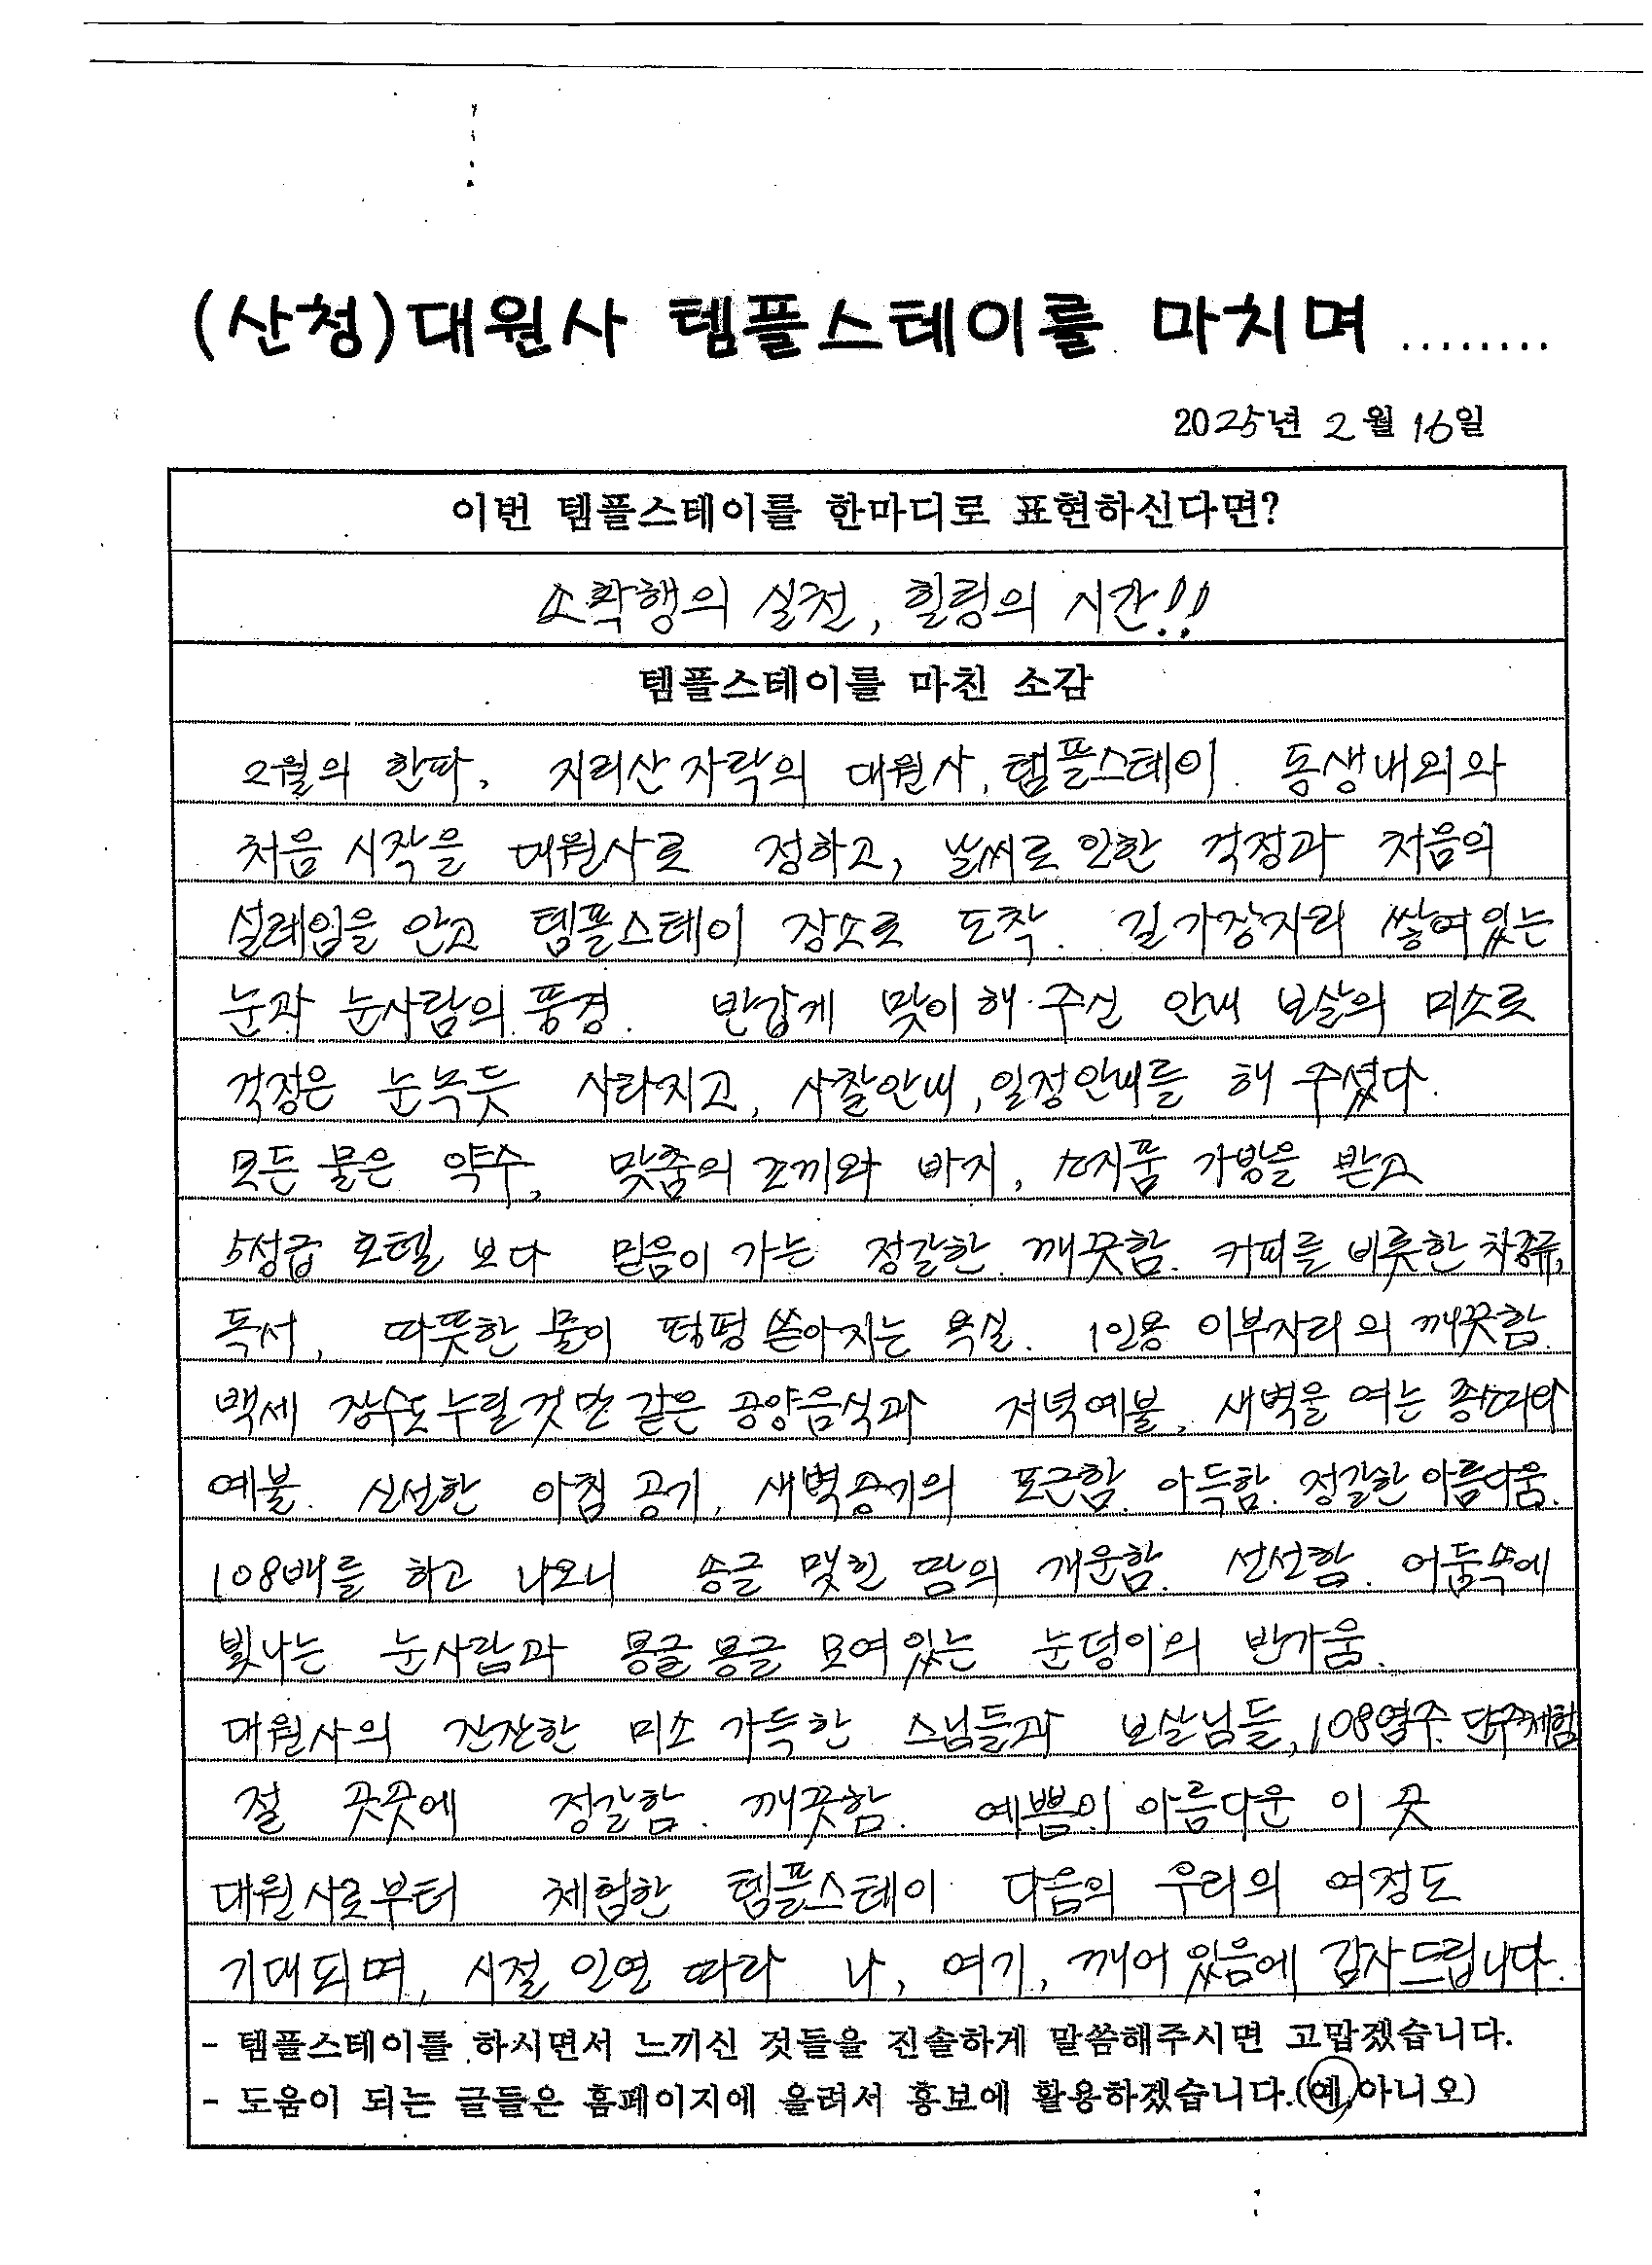 (산청)대원사 템플스테이를 마치며 ........
2025년 2월 16일
이번 템플스테이를 한마디로 표현하신다면?
소확행의 실천, 힐링의 시간!!
템플스테이를 마친 소감
2월의 한파, 지리산 자락의 대원사, 템플스테이. 동생내외와
처음 시작을 대원사로 정하고, 날씨로 인한 걱정과 처음의
설레임을 안고 템플스테이 장소로 도착. 길 가장자리 쌓여있는
눈과 눈사람의 풍경. 반갑게 맞이해 주신 안내 보살의 미소로
걱정은 눈녹듯 사라지고, 사찰안내, 일정안내를 해 주셨다.
모든 물은 약수, 맞춤의 조끼와 바지, 가방을 받고
5성급 호텔 보다 믿음이 가는 정갈한 깨끗함. 커피를 비롯한 차종류,
독서, 따뜻한 물이 펑펑 쏟아지는 욕실. 1인용 이부자리의 깨끗함.
백세 장수도 누릴것만 같은 공양음식과 저녁예불, 새벽을 여는
예불. 신선한 아침 공기, 새벽공기의 포근함. 아득함. 정갈한 아름다움.
108배를 하고 나오니 송글 맺힌 땀의 개운함. 선선함. 어둠속에
빛나는 눈사람과 몽글몽글 모여있는 눈덩이의 반가움.
대원사의 잔잔한 미소 가득한 스님들과 보살님들, 108염주. 단주체험
절 곳곳에 정갈함. 깨끗함. 예쁨의 아름다운 이 곳
대원사로부터 체험한 템플스테이 다음의 우리의 여정도
기대되며, 시절 인연 따라 나, 여기, 깨어 있음에 감사드립니다.
- 템플스테이를 하시면서 느끼신 것들을 진솔하게 말씀해주시면 고맙겠습니다.
- 도움이 되는 글들은 홈페이지에 올려서 홍보에 활용하겠습니다.(예,아니오)